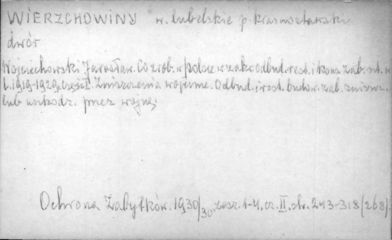 WIERZCHOWINY w. lubelskie p. krasnostawski
dwór
Wojciechowski Jarosław. Co zrob. w Polsce w zakr. odbud. rest. i kons. zab. w
l. 1919-1929. Część I. Zniszczenia wojenne. Odbud. i rest. budow. zab. zniszcz.
lub uszkodz. przez wojnę.
Ochrona Zabytków. 1930/30. zesz. 1-4. cz. II. str. 243-318 (268).